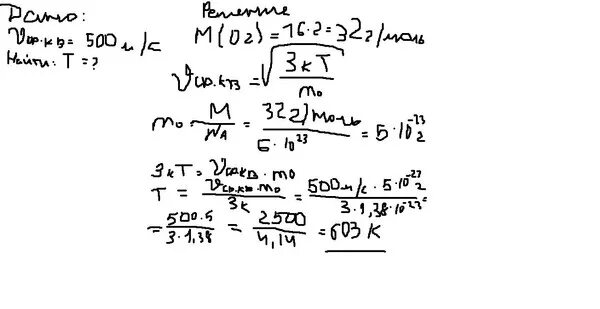 Дано:
Vср.кв = 500 м/с
Найти: T = ?
Решение
M(O2) = 16·2 = 32 г/моль
Vср.кв = √(3kT/m0)
m0 = M/NA = 32 г/моль / 6·10^23 = 5·10^-23 г
3kT = Vср.кв · m0
T = Vср.кв · m0 / 3k = 500 м/с · 5·10^-23 г / 3·1,38·10^-23 =
= 500·5 / 3·1,38 = 2500 / 4,14 = 603 K